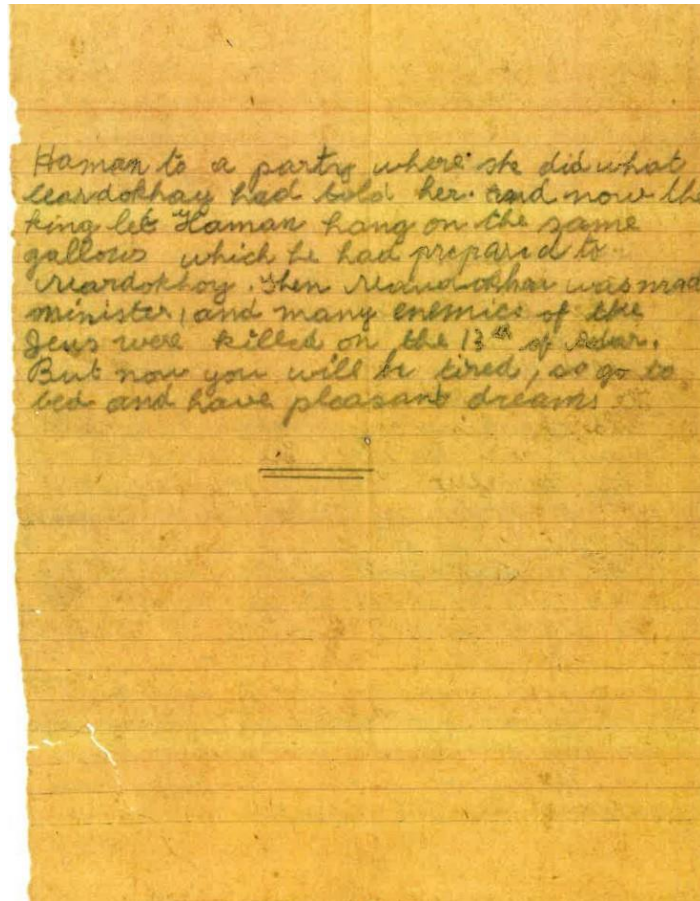 Haman to a party where she did what
Mardokhay had told her. And now the
king let Haman hang on the same
gallows which he had prepared to
Mardokhoy. Then Mardokhai was mad
minister, and many enemies of the
Jews were killed on the 13th of Adar.
But now you will be tired, so go to
bed and have pleasant dreams